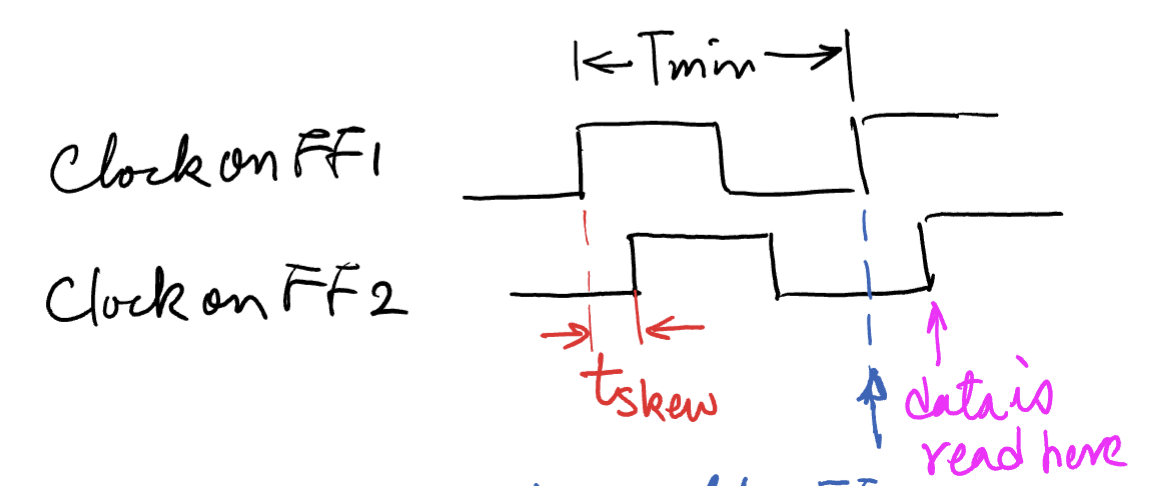 Tmin
Clock on FF1
Clock on FF2
tskew
data is
read here